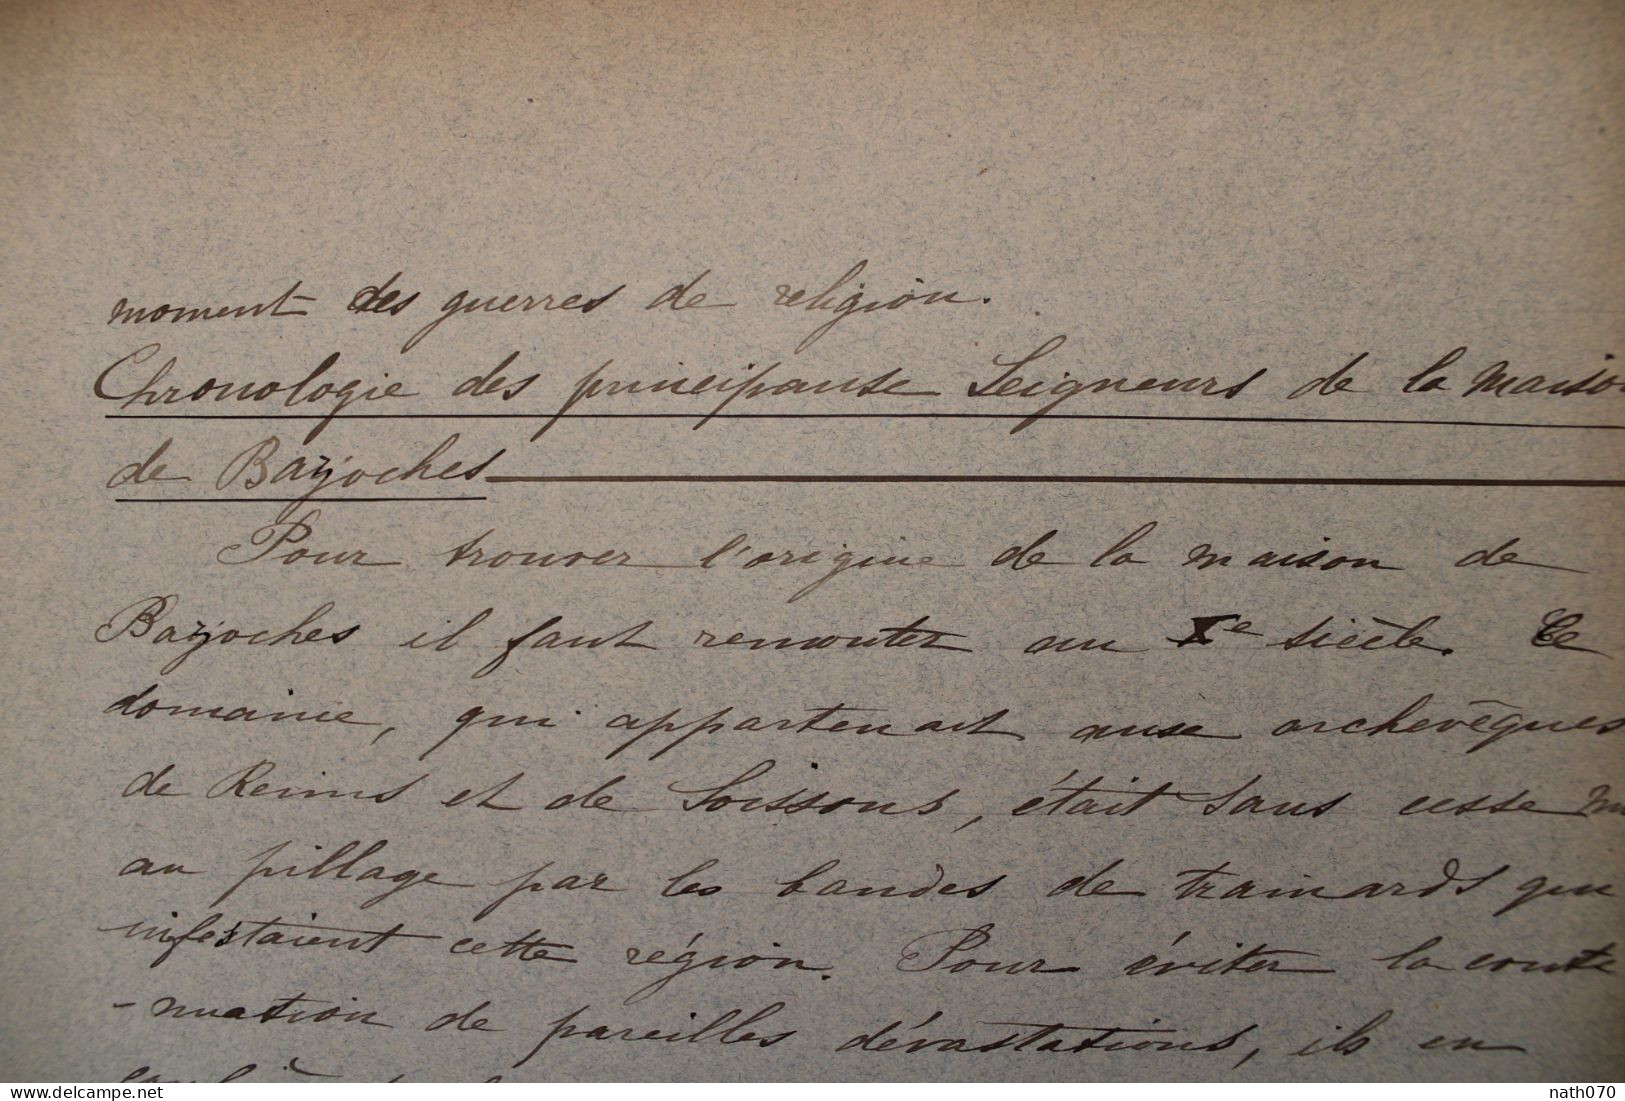 moment des guerres de religion.
Chronologie des principause Seigneurs de la maison
de Bazoches
Pour trouver l'origine de la maison de
Bazoches il faut remonter au Xe siècle. Ce
domaine, qui appartenait aux archevêques
de Reims et de Soissons, était sans cesse
au pillage par les bandes de trainards qui
infestaient cette région. Pour éviter la conti
-nuation de pareilles dévastations, ils en
delcampe.net
nath070